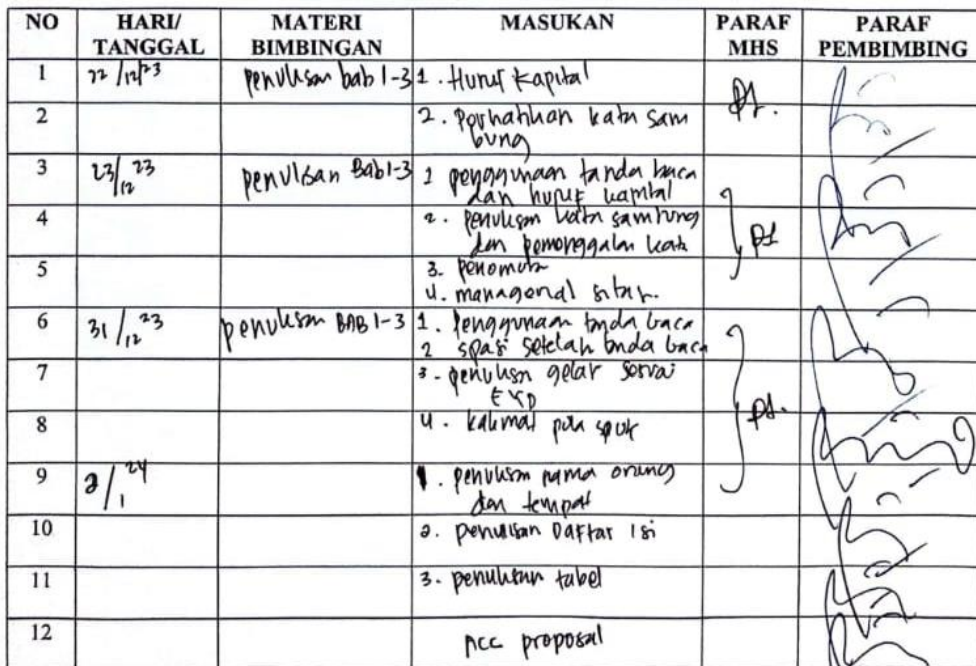 NO HARI/ TANGGAL MATERI BIMBINGAN MASUKAN PARAF MHS PARAF PEMBIMBING
1 22/12/23 penulisan bab 1-3 1. Huruf kapital
2 2. Perhatikan kata sam
bung
3 23/12 23 penulisan Bab 1-3 1 penggunaan tanda baca
dan huruf kapital
4 2. penulisan kata sambung
dan pemenggalan kata
5 3. penomoran
4. managerial
6 31/12 23 penulisan BAB 1-3 1. penggunaan tanda baca
2 spasi setelah tanda baca
7 3. penulisan gelar sesuai
EYD
8 4. kalimat pola spok
9 2/1 24 1. penulisan nama orang
dan tempat
10 2. penulisan Daftar isi
11 3. penulisan tabel
12 Acc proposal